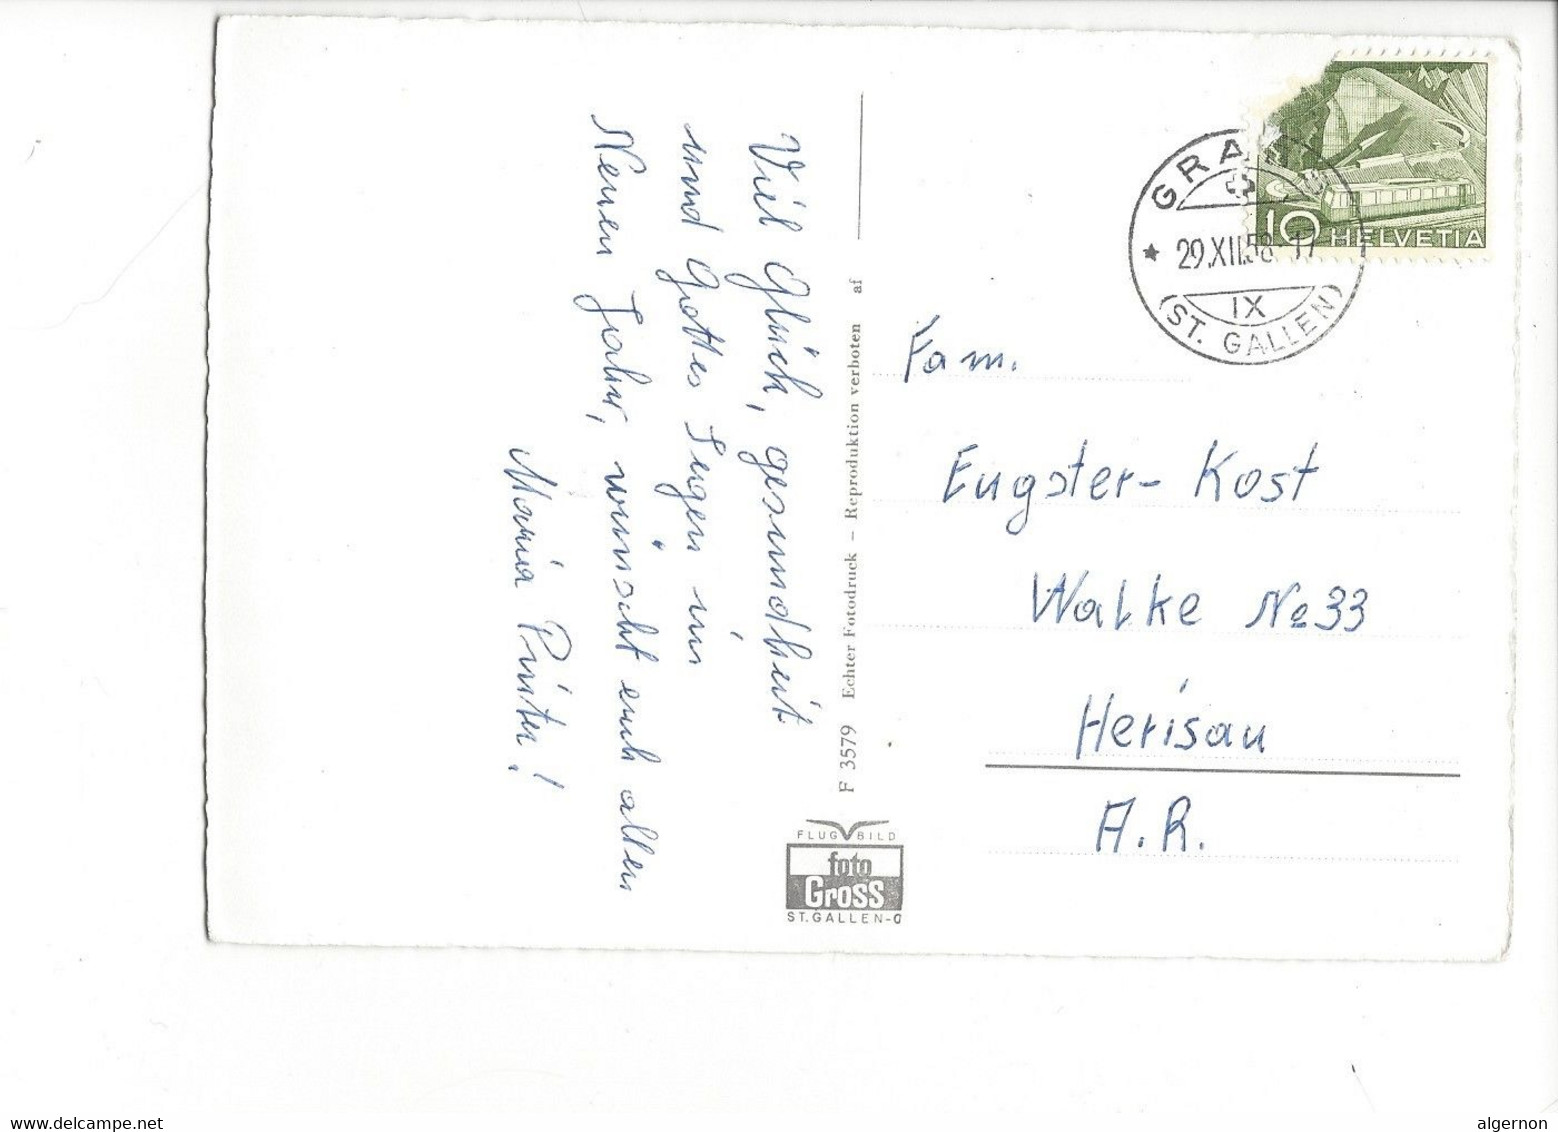 Viel Glück, gesundheit
und Gottes Segen im
Neuen Jahr, wünscht euch allen
Maria
F 3579 Echter Fotodruck – Reproduktion verboten af
FLUGBILD
foto
Gross
ST. GALLEN-O
10 HELVETIA
29.XII.58 17
IX
(ST. GALLEN)
Fam.
Eugster-Kost
Walke No 33
Herisau
A.R.
delcampe.net
algernon